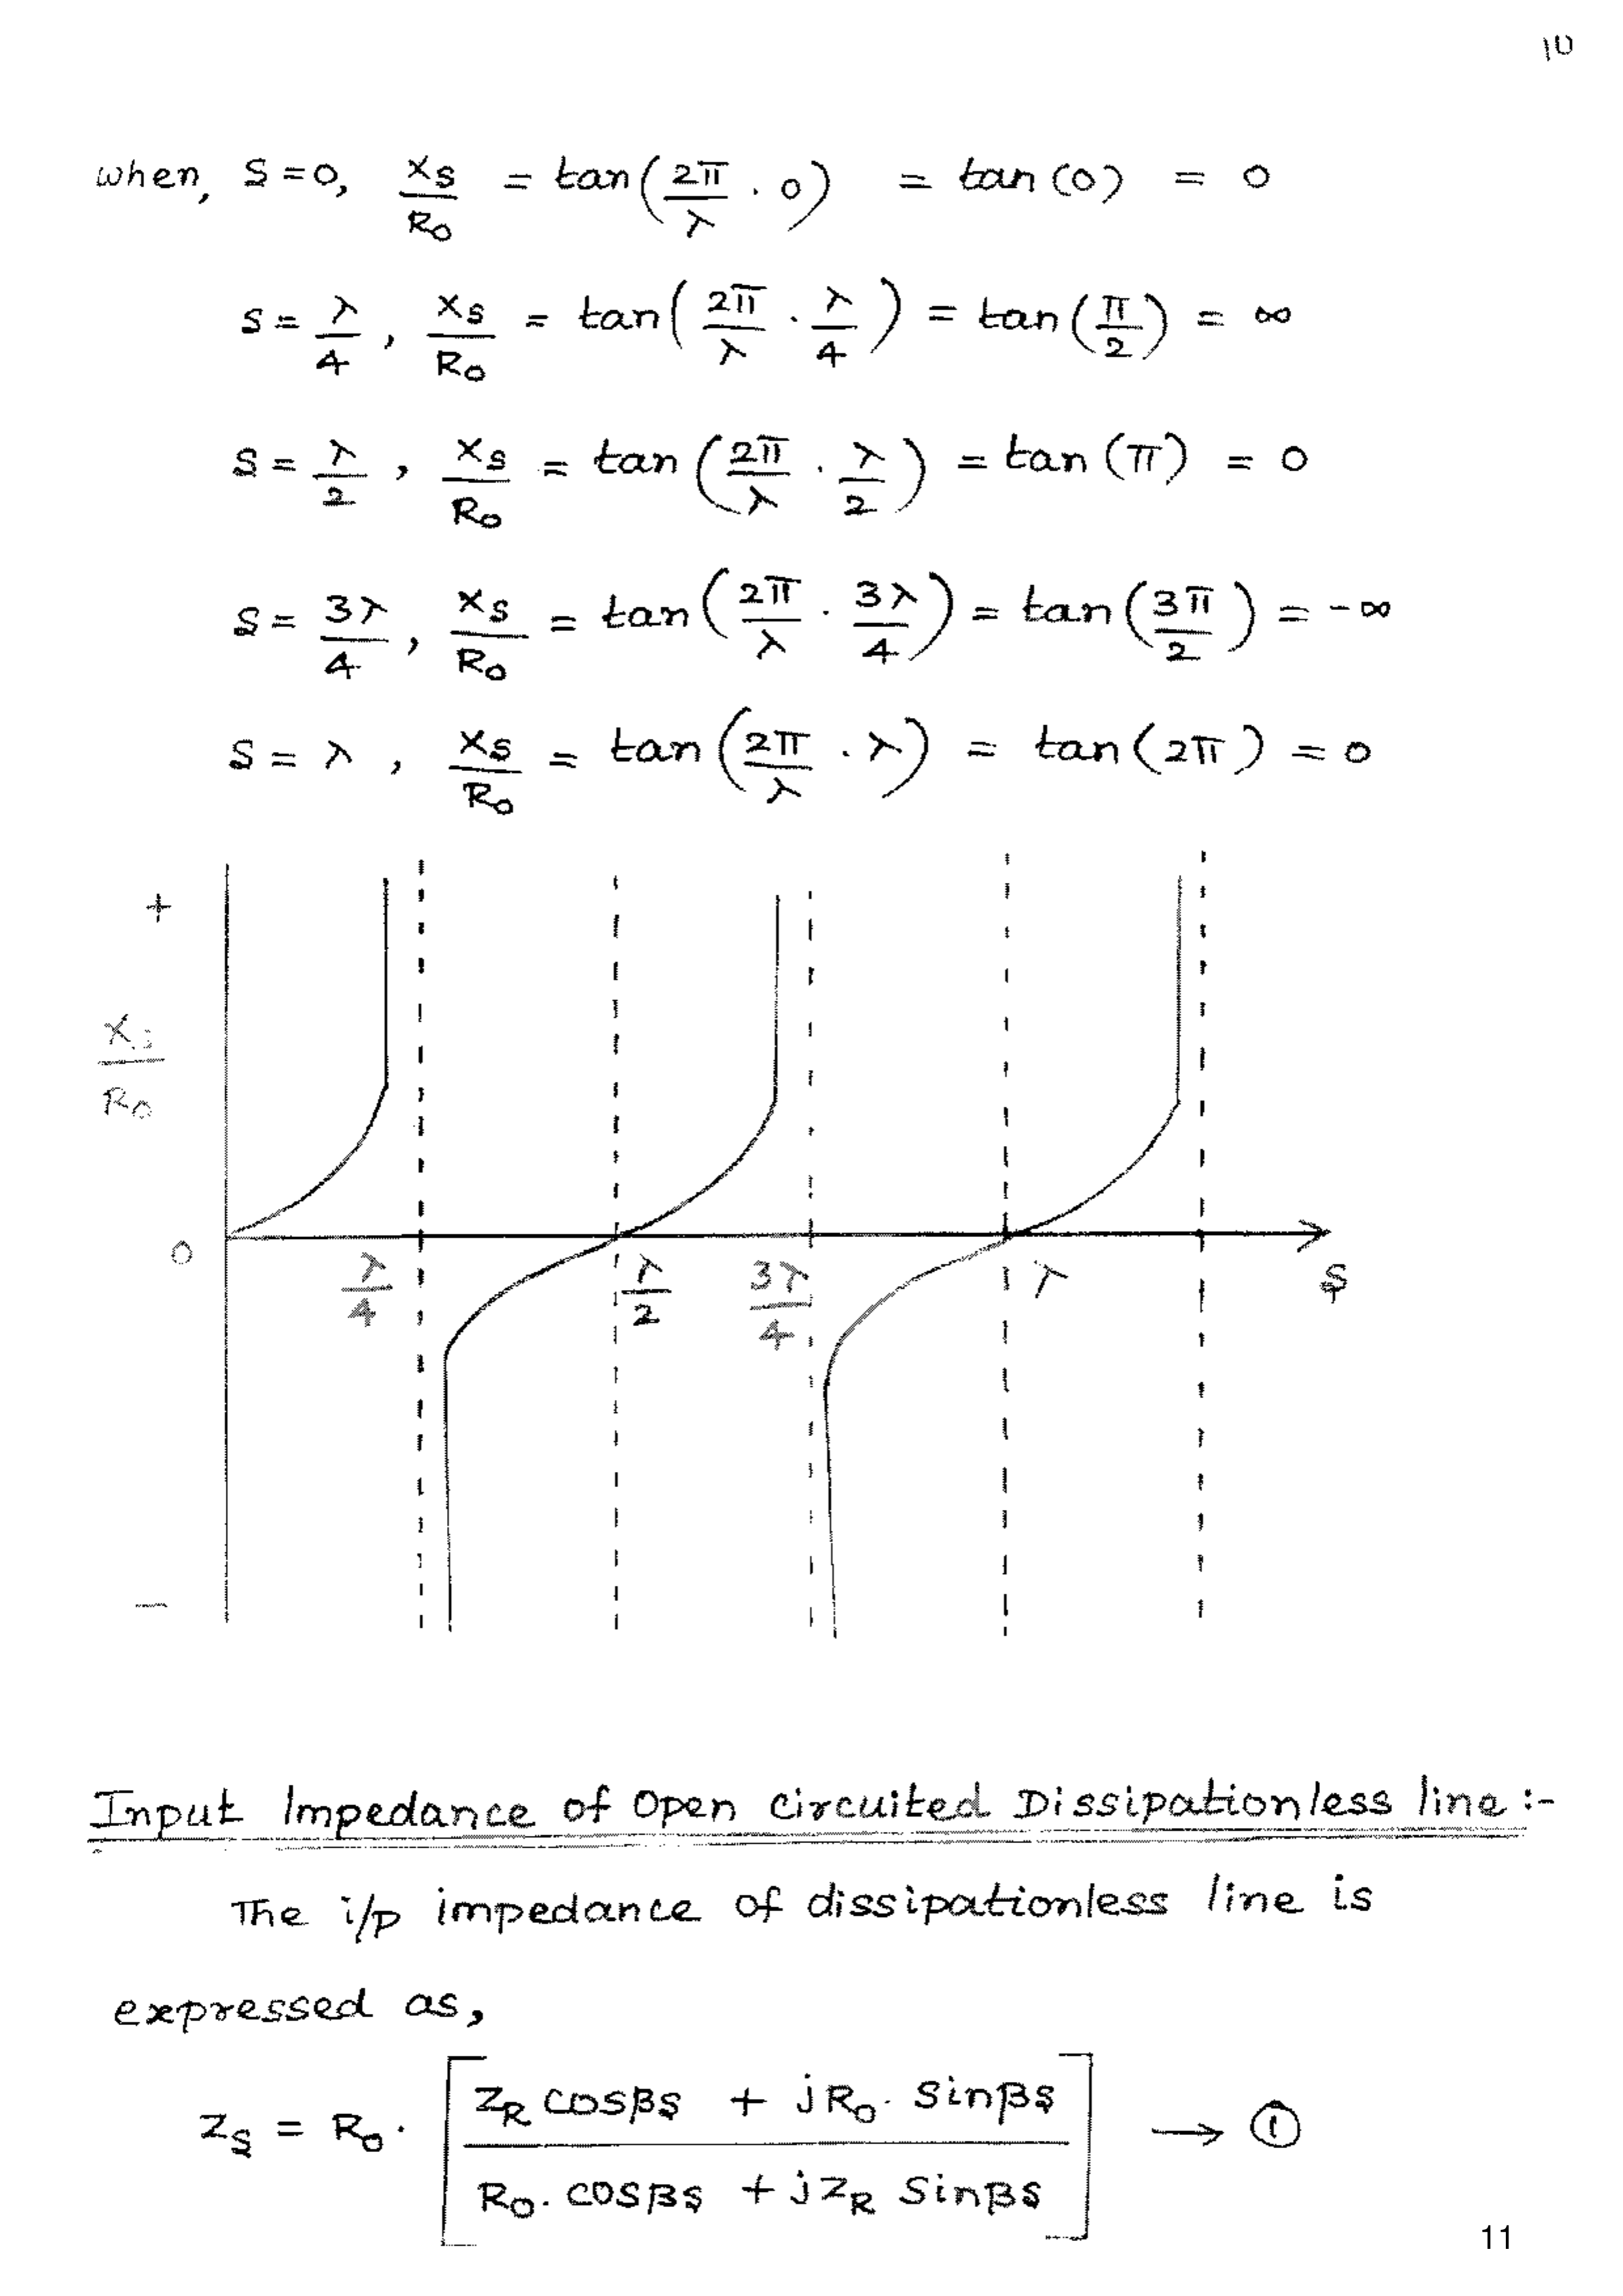 10
when, S = 0, Xs/R0 = tan(2π/λ . 0) = tan(0) = 0
S = λ/4, Xs/R0 = tan(2π/λ . λ/4) = tan(π/2) = ∞
S = λ/2, Xs/R0 = tan(2π/λ . λ/2) = tan(π) = 0
S = 3λ/4, Xs/R0 = tan(2π/λ . 3λ/4) = tan(3π/2) = -∞
S = λ, Xs/R0 = tan(2π/λ . λ) = tan(2π) = 0
+
Xs/R0
0
λ/4 λ/2 3λ/4 λ S
−
Input Impedance of Open circuited Dissipationless line :-
The i/p impedance of dissipationless line is
expressed as,
Zs = R0 . [ZR cosβs + jR0. Sinβs / R0. cosβs + jZR Sinβs] → ①
11